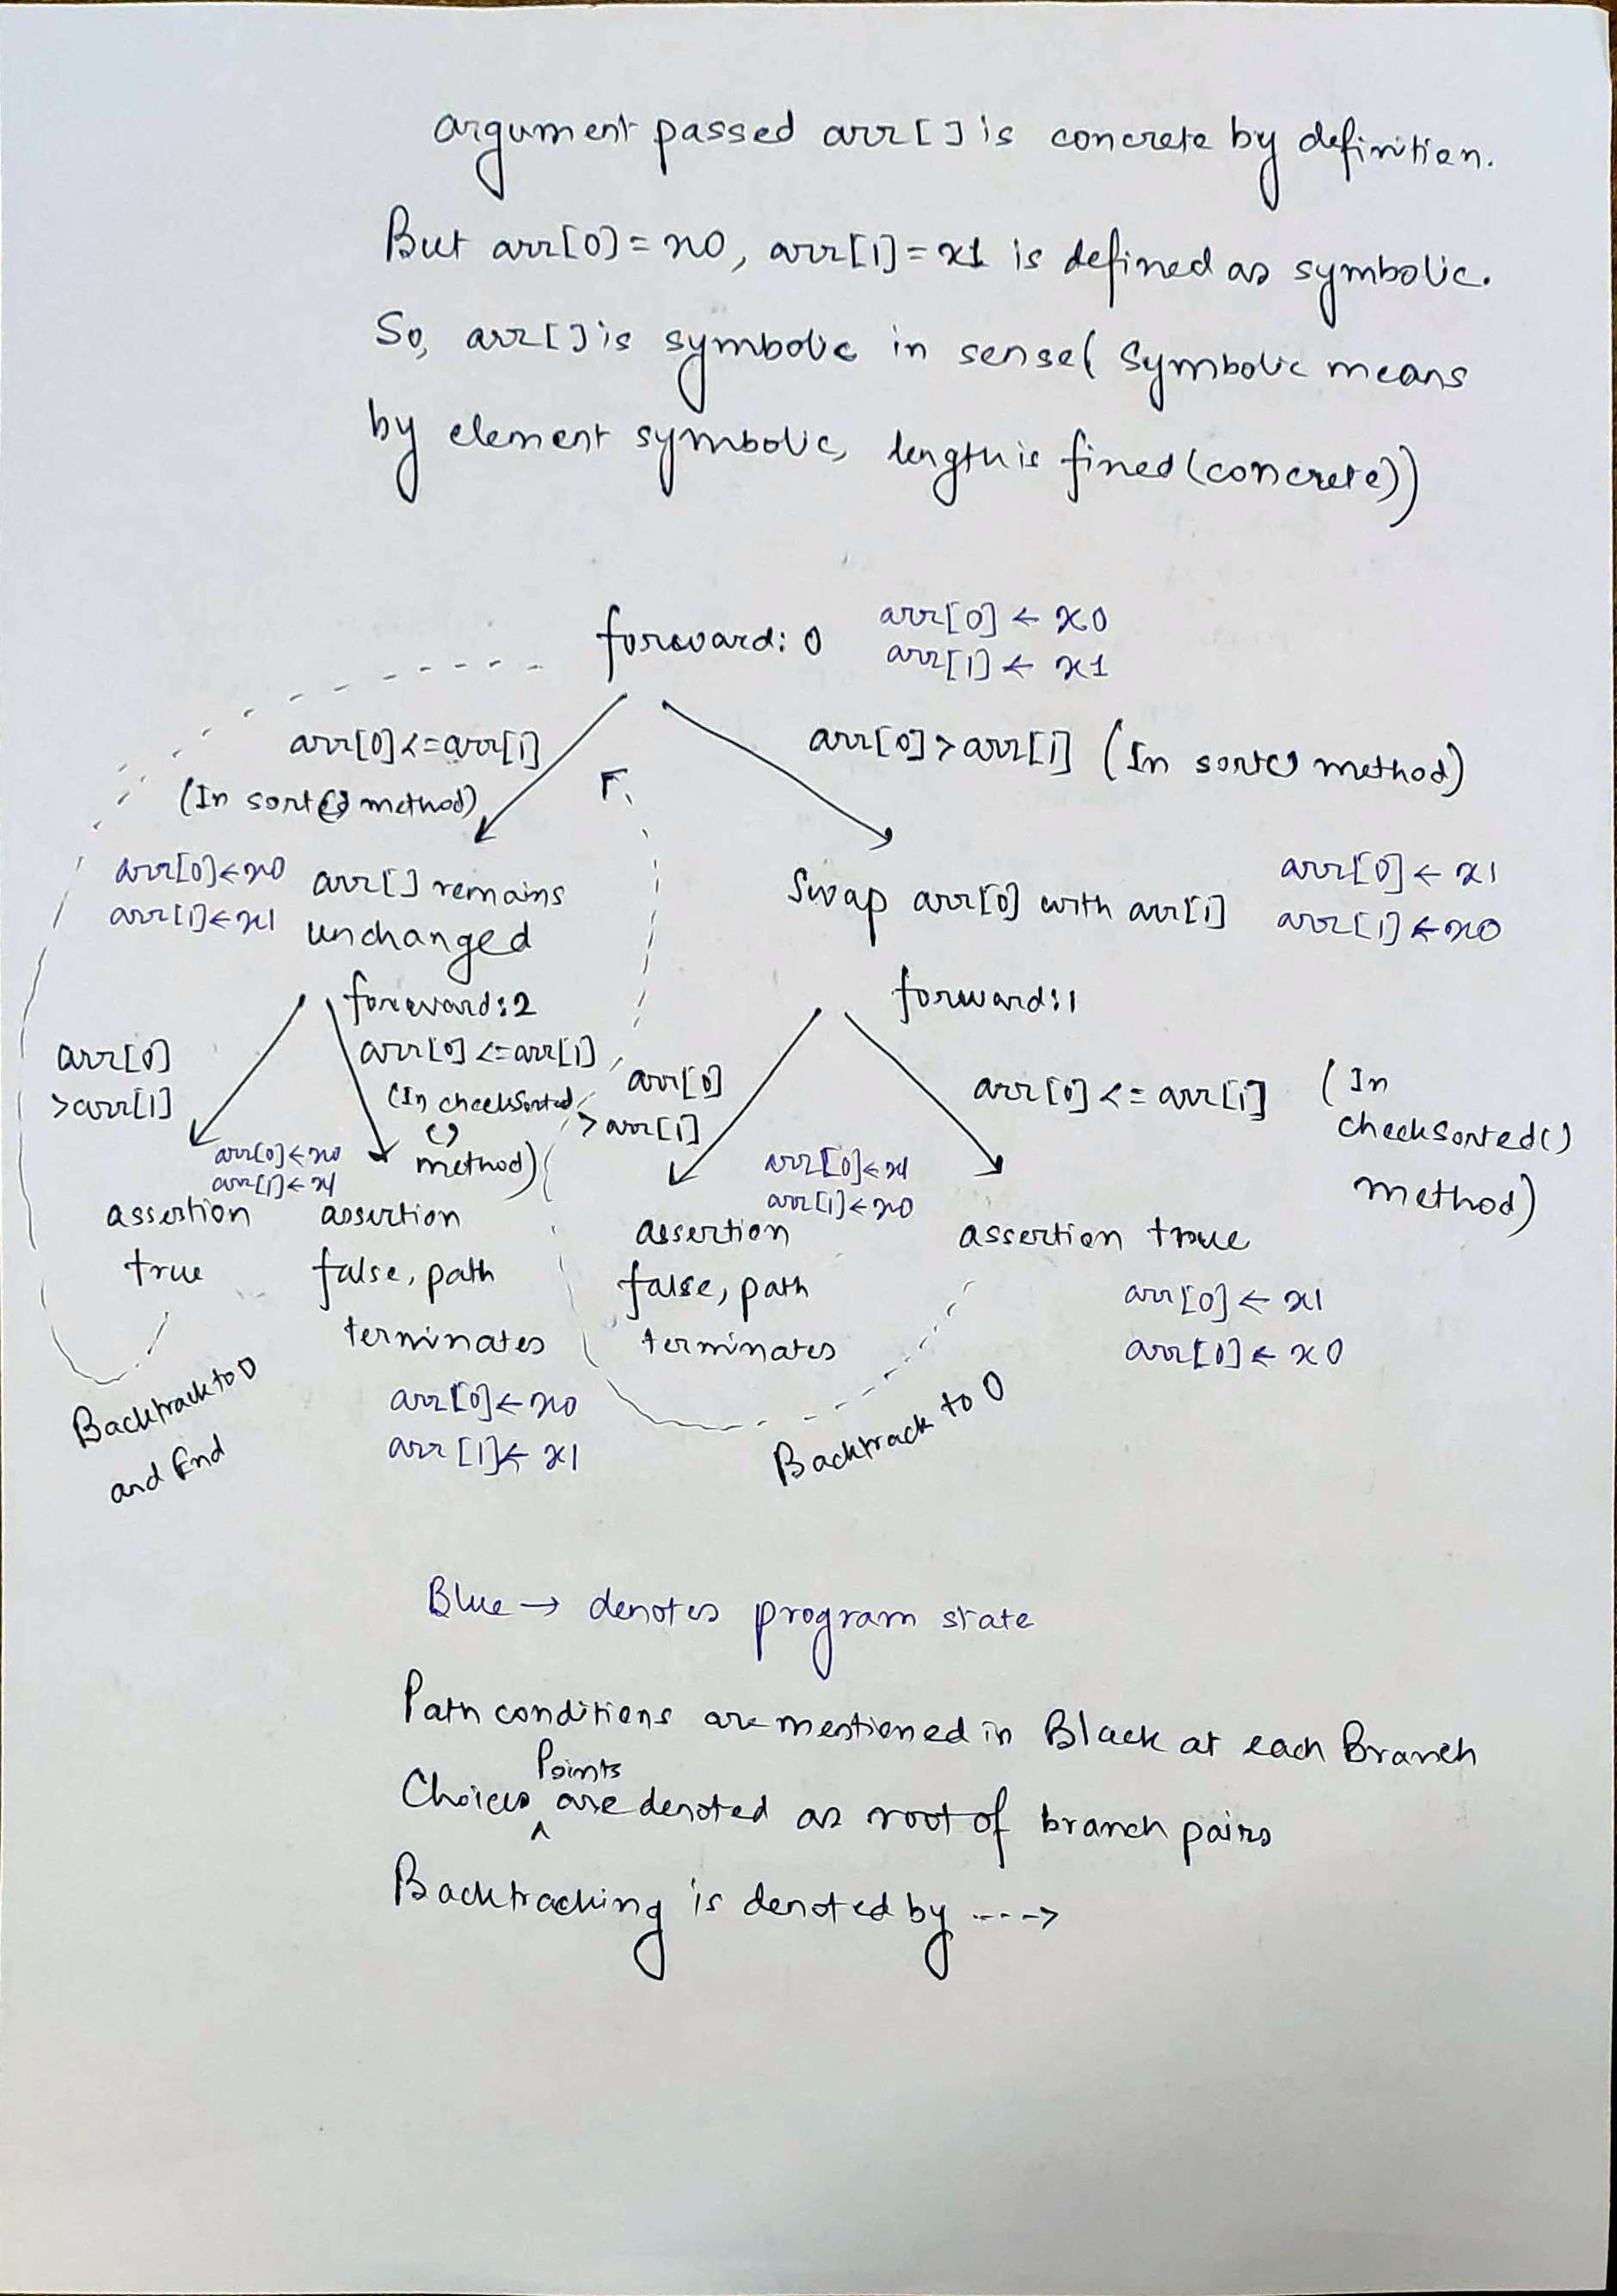 argument passed arr[] is concrete by definition.
But arr[0] = x0, arr[1] = x1 is defined as symbolic.
So, arr[] is symbolic in sense( Symbolic means
by element symbolic, length is fixed (concrete))
forward: 0
arr[0] ← x0
arr[1] ← x1
arr[0] <= arr[1]
(In sort() method)
arr[0] > arr[1] (In sort() method)
arr[0] ← x0
arr[1] ← x1
arr[] remains
unchanged
Swap arr[0] with arr[1]
arr[0] ← x1
arr[1] ← x0
forward: 2
forward: 1
arr[0]
> arr[1]
arr[0] <= arr[1]
(In checkSorted
()
method)
arr[0]
> arr[1]
arr[0] <= arr[1]
(In
checkSorted()
method)
arr[0] ← x0
arr[1] ← x1
arr[0] ← x1
arr[1] ← x0
assertion
true
assertion
false, path
terminates
assertion
false, path
terminates
assertion true
arr[0] ← x1
arr[0] ← x0
arr[0] ← x0
arr[1] ← x1
Backtrack to 0
and End
Backtrack to 0
Blue → denotes program state
Path conditions are mentioned in Black at each Branch
Choices Points are denoted as root of branch pairs
Backtracking is denoted by ---->